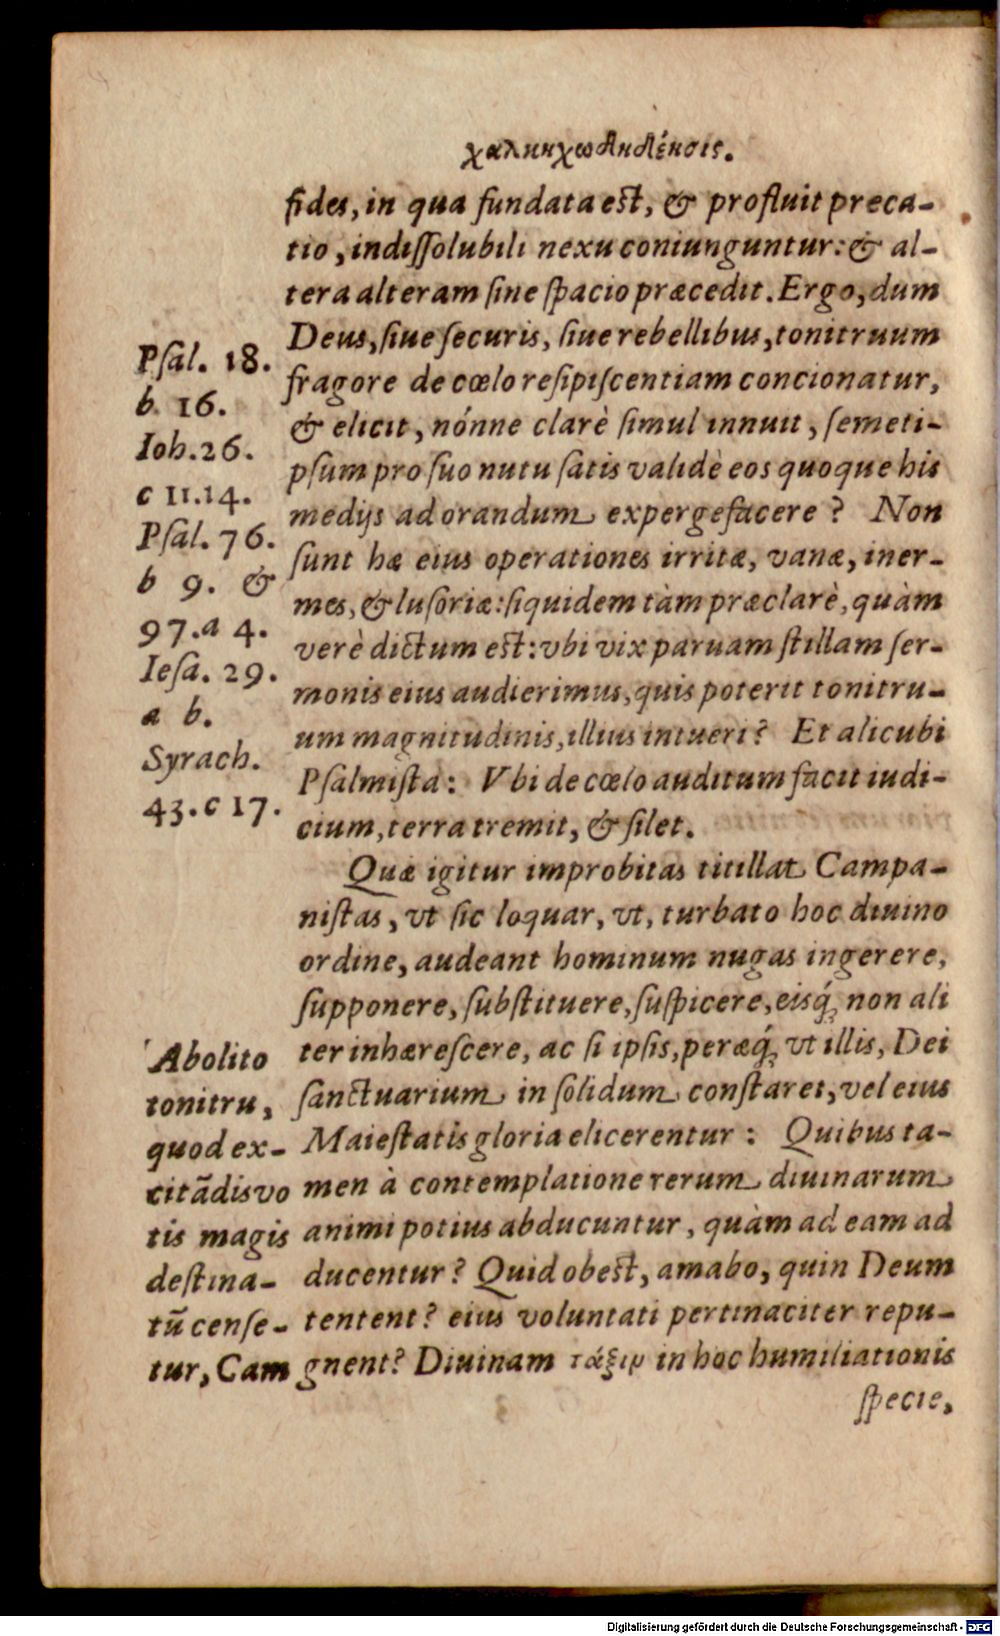 χαλκηχωδκδένσις.
fides, in qua fundata est, & profluit preca-
tio, indiſſolubili nexu coniunguntur: & al-
tera alteram ſine ſpacio præcedit. Ergo, dum
Deus, ſiue ſecuris, ſiue rebellibus, tonitruum
fragore de cœlo reſipiſcentiam concionatur,
& elicit, nónne clarè ſimul innuit, ſemeti-
pſum pro ſuo nutu ſatis validè eos quoque his
medijs ad orandum expergefacere? Non
ſunt hæ eius operationes irritæ, vanæ, iner-
mes, & luſoriæ: ſiquidem tàm præclarè, quàm
verè dictum est: vbi vix paruam ſtillam ſer-
monis eius audierimus, quis poterit tonitru-
um magnitudinis, illius intueri? Et alicubi
Pſalmiſta: Vbi de cœlo auditum facit iudi-
cium, terra tremit, & ſilet.
Pſal. 18.
b 16.
Iob. 26.
c 11.14.
Pſal. 76.
b 9. &
97. a 4.
Ieſa. 29.
a b.
Syrach.
43. c 17.
Quæ igitur improbitas titillat Campa-
niſtas, vt ſic loquar, vt, turbato hoc diuino
ordine, audeant hominum nugas ingerere,
ſupponere, ſubſtituere, ſuſpicere, eisq́; non ali
ter inhæreſcere, ac ſi ipſis, peræq́; vt illis, Dei
ſanctuarium in ſolidum conſtaret, vel eius
Maieſtatis gloria elicerentur: Quibus ta-
men à contemplatione rerum diuinarum
animi potius abducuntur, quàm ad eam ad
ducentur? Quid obest, amabo, quin Deum
tentent? eius voluntati pertinaciter repu-
gnent? Diuinam τάξιν in hoc humiliationis
Abolito
tonitru,
quod ex-
citādis vo
tis magis
deſtina-
tū cenſe-
tur, Cam
ſpecie,
Digitalisierung gefördert durch die Deutsche Forschungsgemeinschaft - DFG